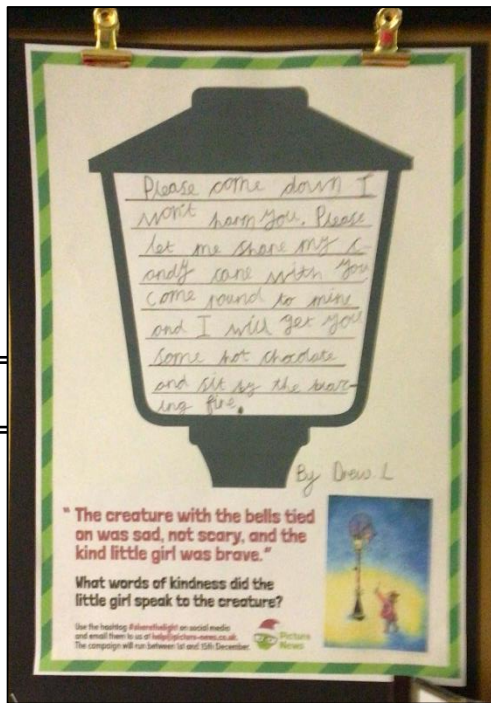 Please come down I
won't harm you. Please
let me share my c-
andy cane with you
come round to mine
and I will get you
some hot chocolate
and sit by the roar-
ing fire.
By Drew. L
" The creature with the bells tied
on was sad, not scary, and the
kind little girl was brave."
What words of kindness did the
little girl speak to the creature?
Use the hashtag #sharethelight on social media
and email them to us at help@picture-news.co.uk.
The campaign will run between 1st and 15th December.
Picture
News